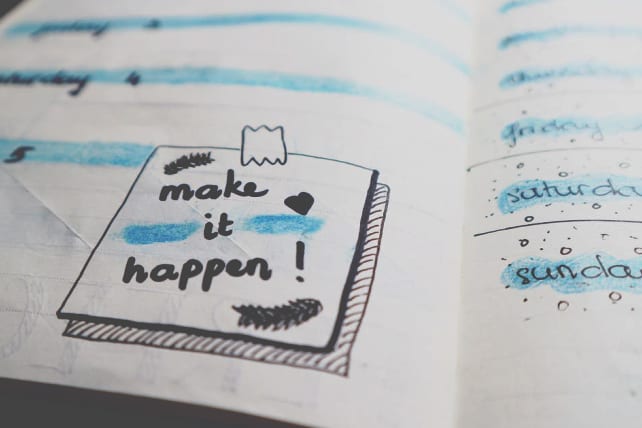 aturday 4
5
make
it
happen !
thursday
friday
saturda
sunday